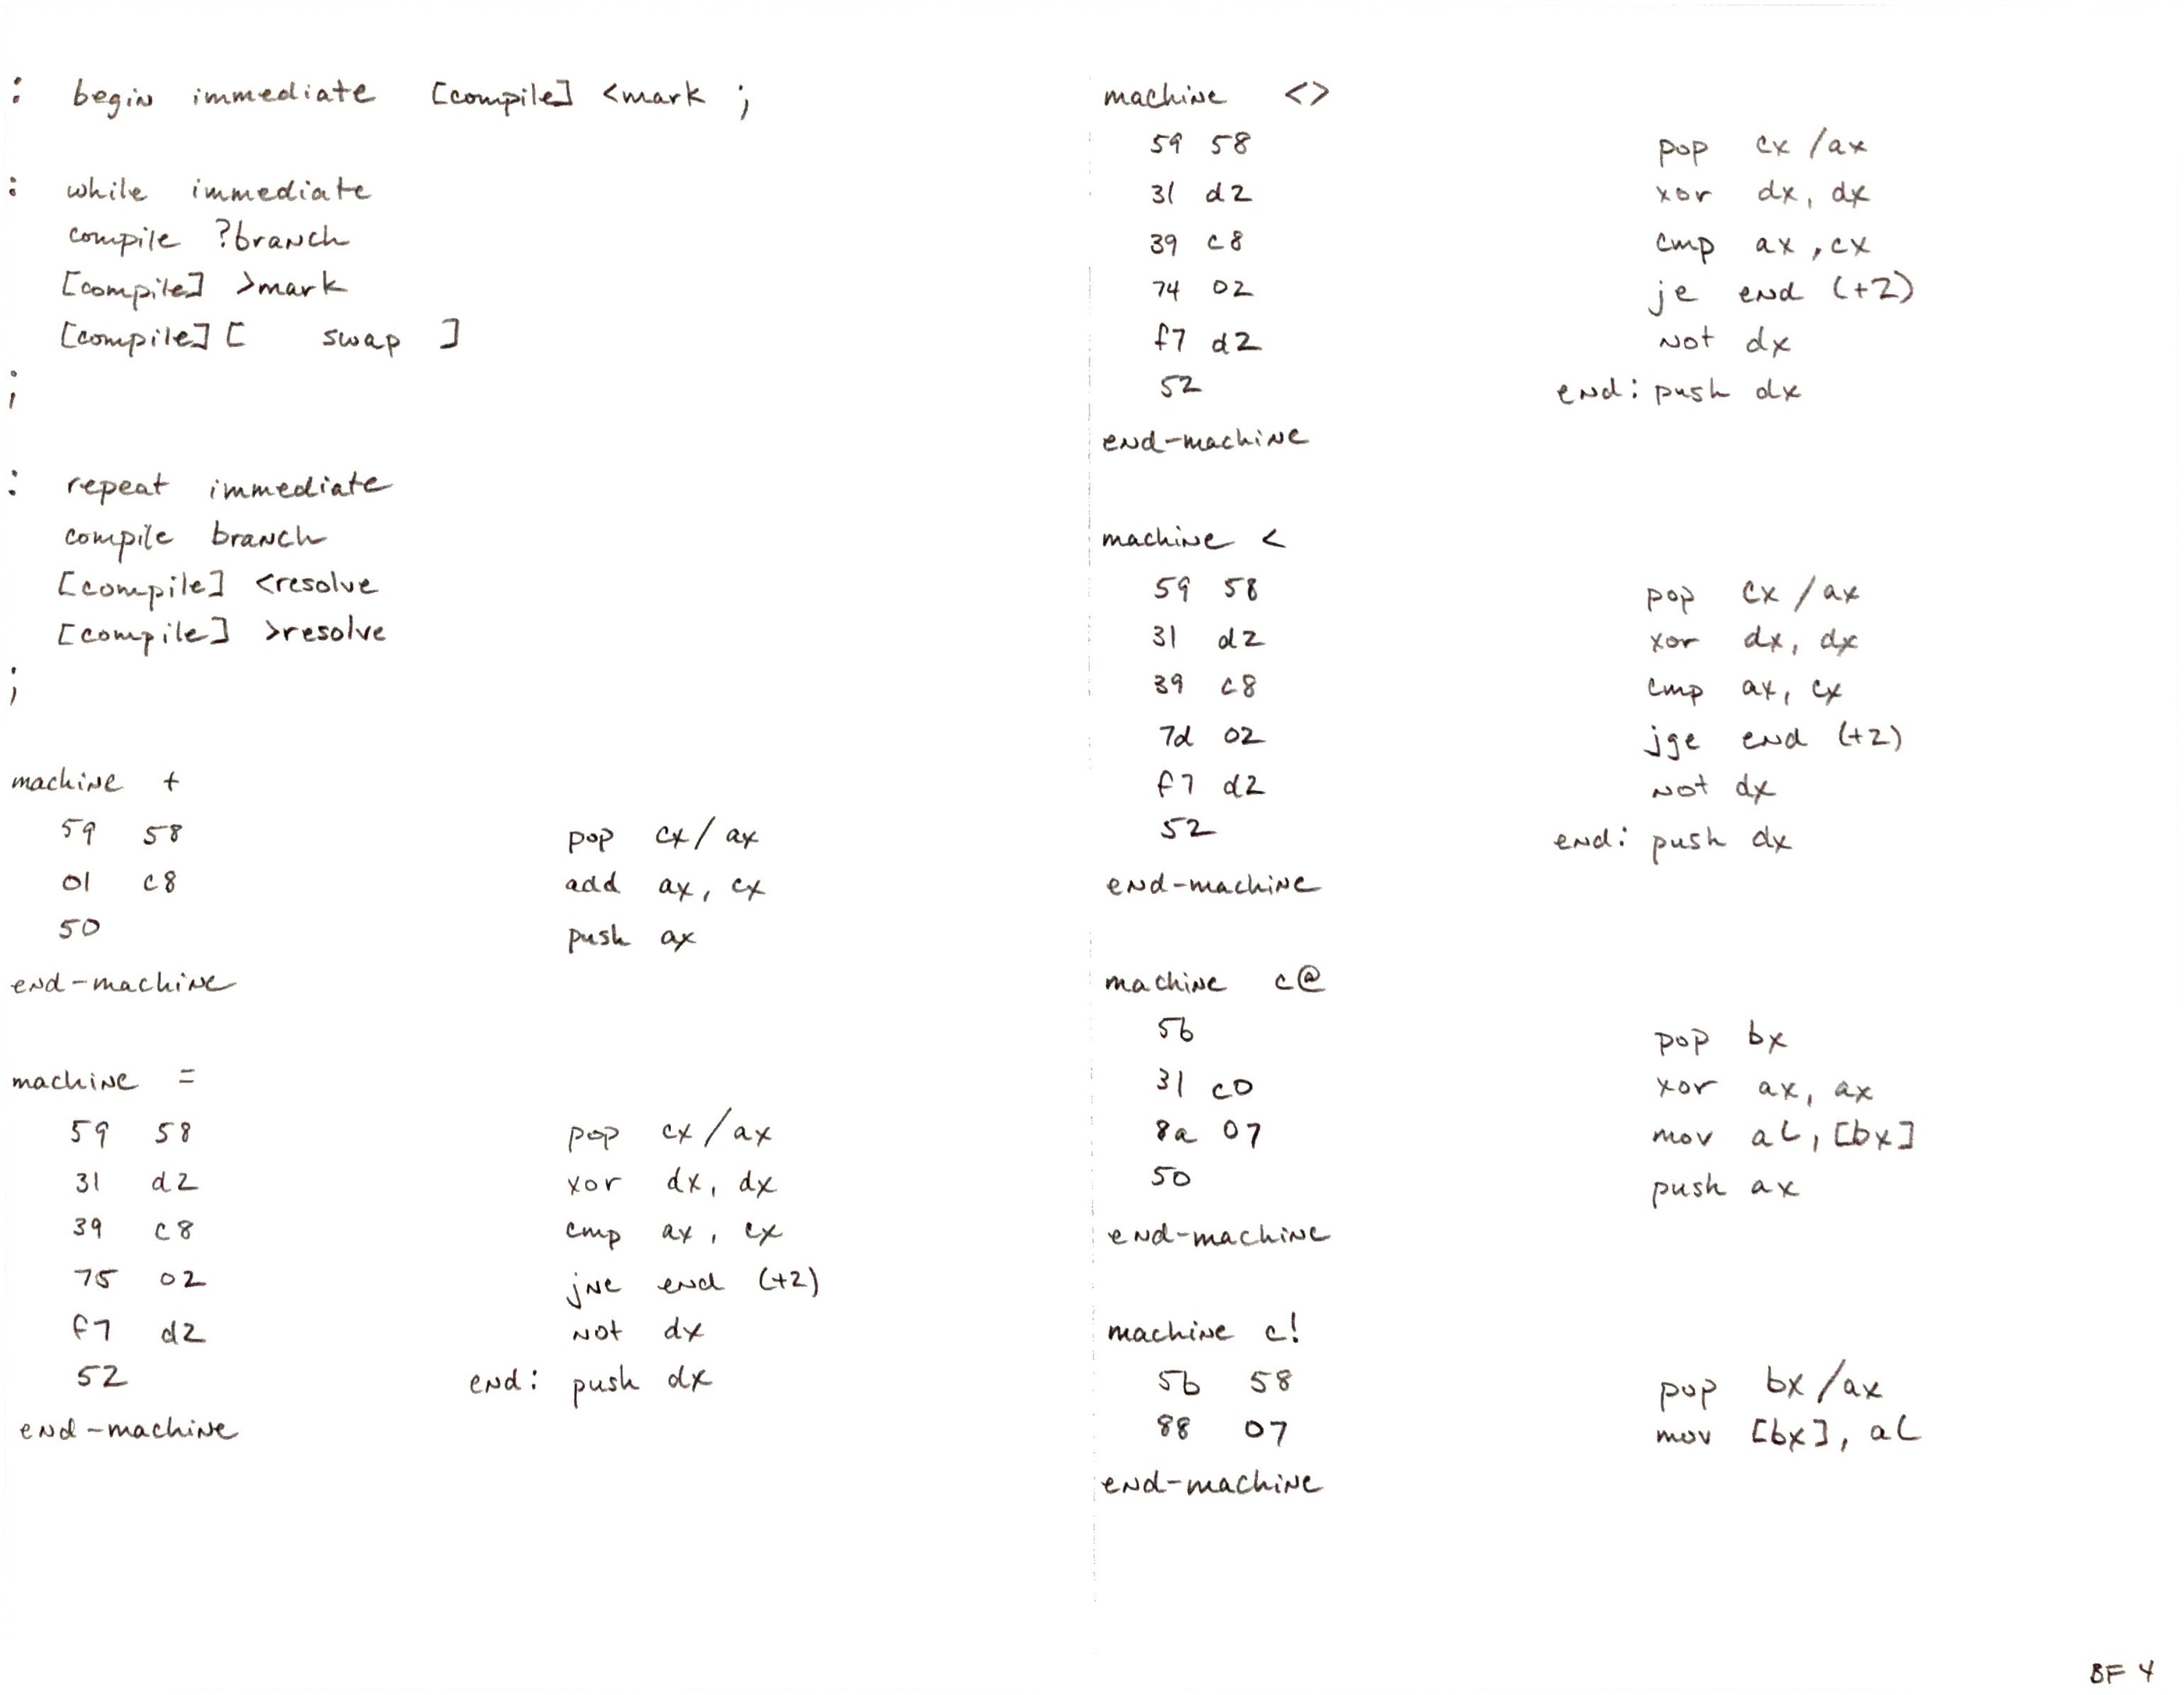 : begin immediate [compile] <mark ;
: while immediate
compile ?branch
[compile] >mark
[compile] [ swap ]
;
: repeat immediate
compile branch
[compile] <resolve
[compile] >resolve
;
machine +
59 58 pop cx / ax
01 c8 add ax, cx
50 push ax
end-machine
machine =
59 58 pop cx / ax
31 d2 xor dx, dx
39 c8 cmp ax, cx
75 02 jne end (+2)
f7 d2 not dx
52 end: push dx
end-machine
machine <>
59 58 pop cx / ax
31 d2 xor dx, dx
39 c8 cmp ax, cx
74 02 je end (+2)
f7 d2 not dx
52 end: push dx
end-machine
machine <
59 58 pop cx / ax
31 d2 xor dx, dx
39 c8 cmp ax, cx
7d 02 jge end (+2)
f7 d2 not dx
52 end: push dx
end-machine
machine c@
5b pop bx
31 c0 xor ax, ax
8a 07 mov aL, [bx]
50 push ax
end-machine
machine c!
5b 58 pop bx / ax
88 07 mov [bx], aL
end-machine
BF 4